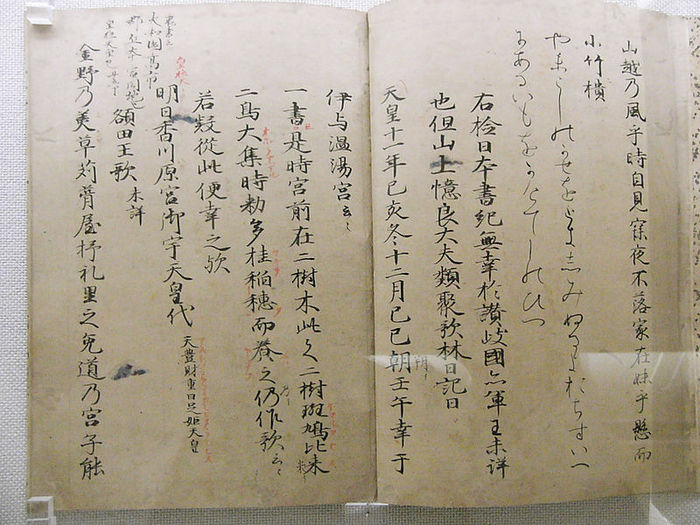 山越乃風乎時自見寐夜不落家在妹乎懸而
小竹樻
やまこしのかせをときしみぬるよおちすいへ
にあるいもをかけてしのひつ
右捡日本書紀無幸於讃岐國亦軍王未詳
也但山上憶良大夫類聚歌林日記曰
天皇十一年己亥冬十二月己巳朔壬午幸于
伊与温湯宮云々
一書是時宮前在二樹木此之二樹斑鳩比米
二鳥大集時勅多桂稲穂而養之仍作歌云々
若疑從此便幸之歟
明日香川原宮御宇天皇代 天豊財重日足姫天皇
額田王歌 未詳
金野乃美草苅葺屋杼礼里之兎道乃宮子能